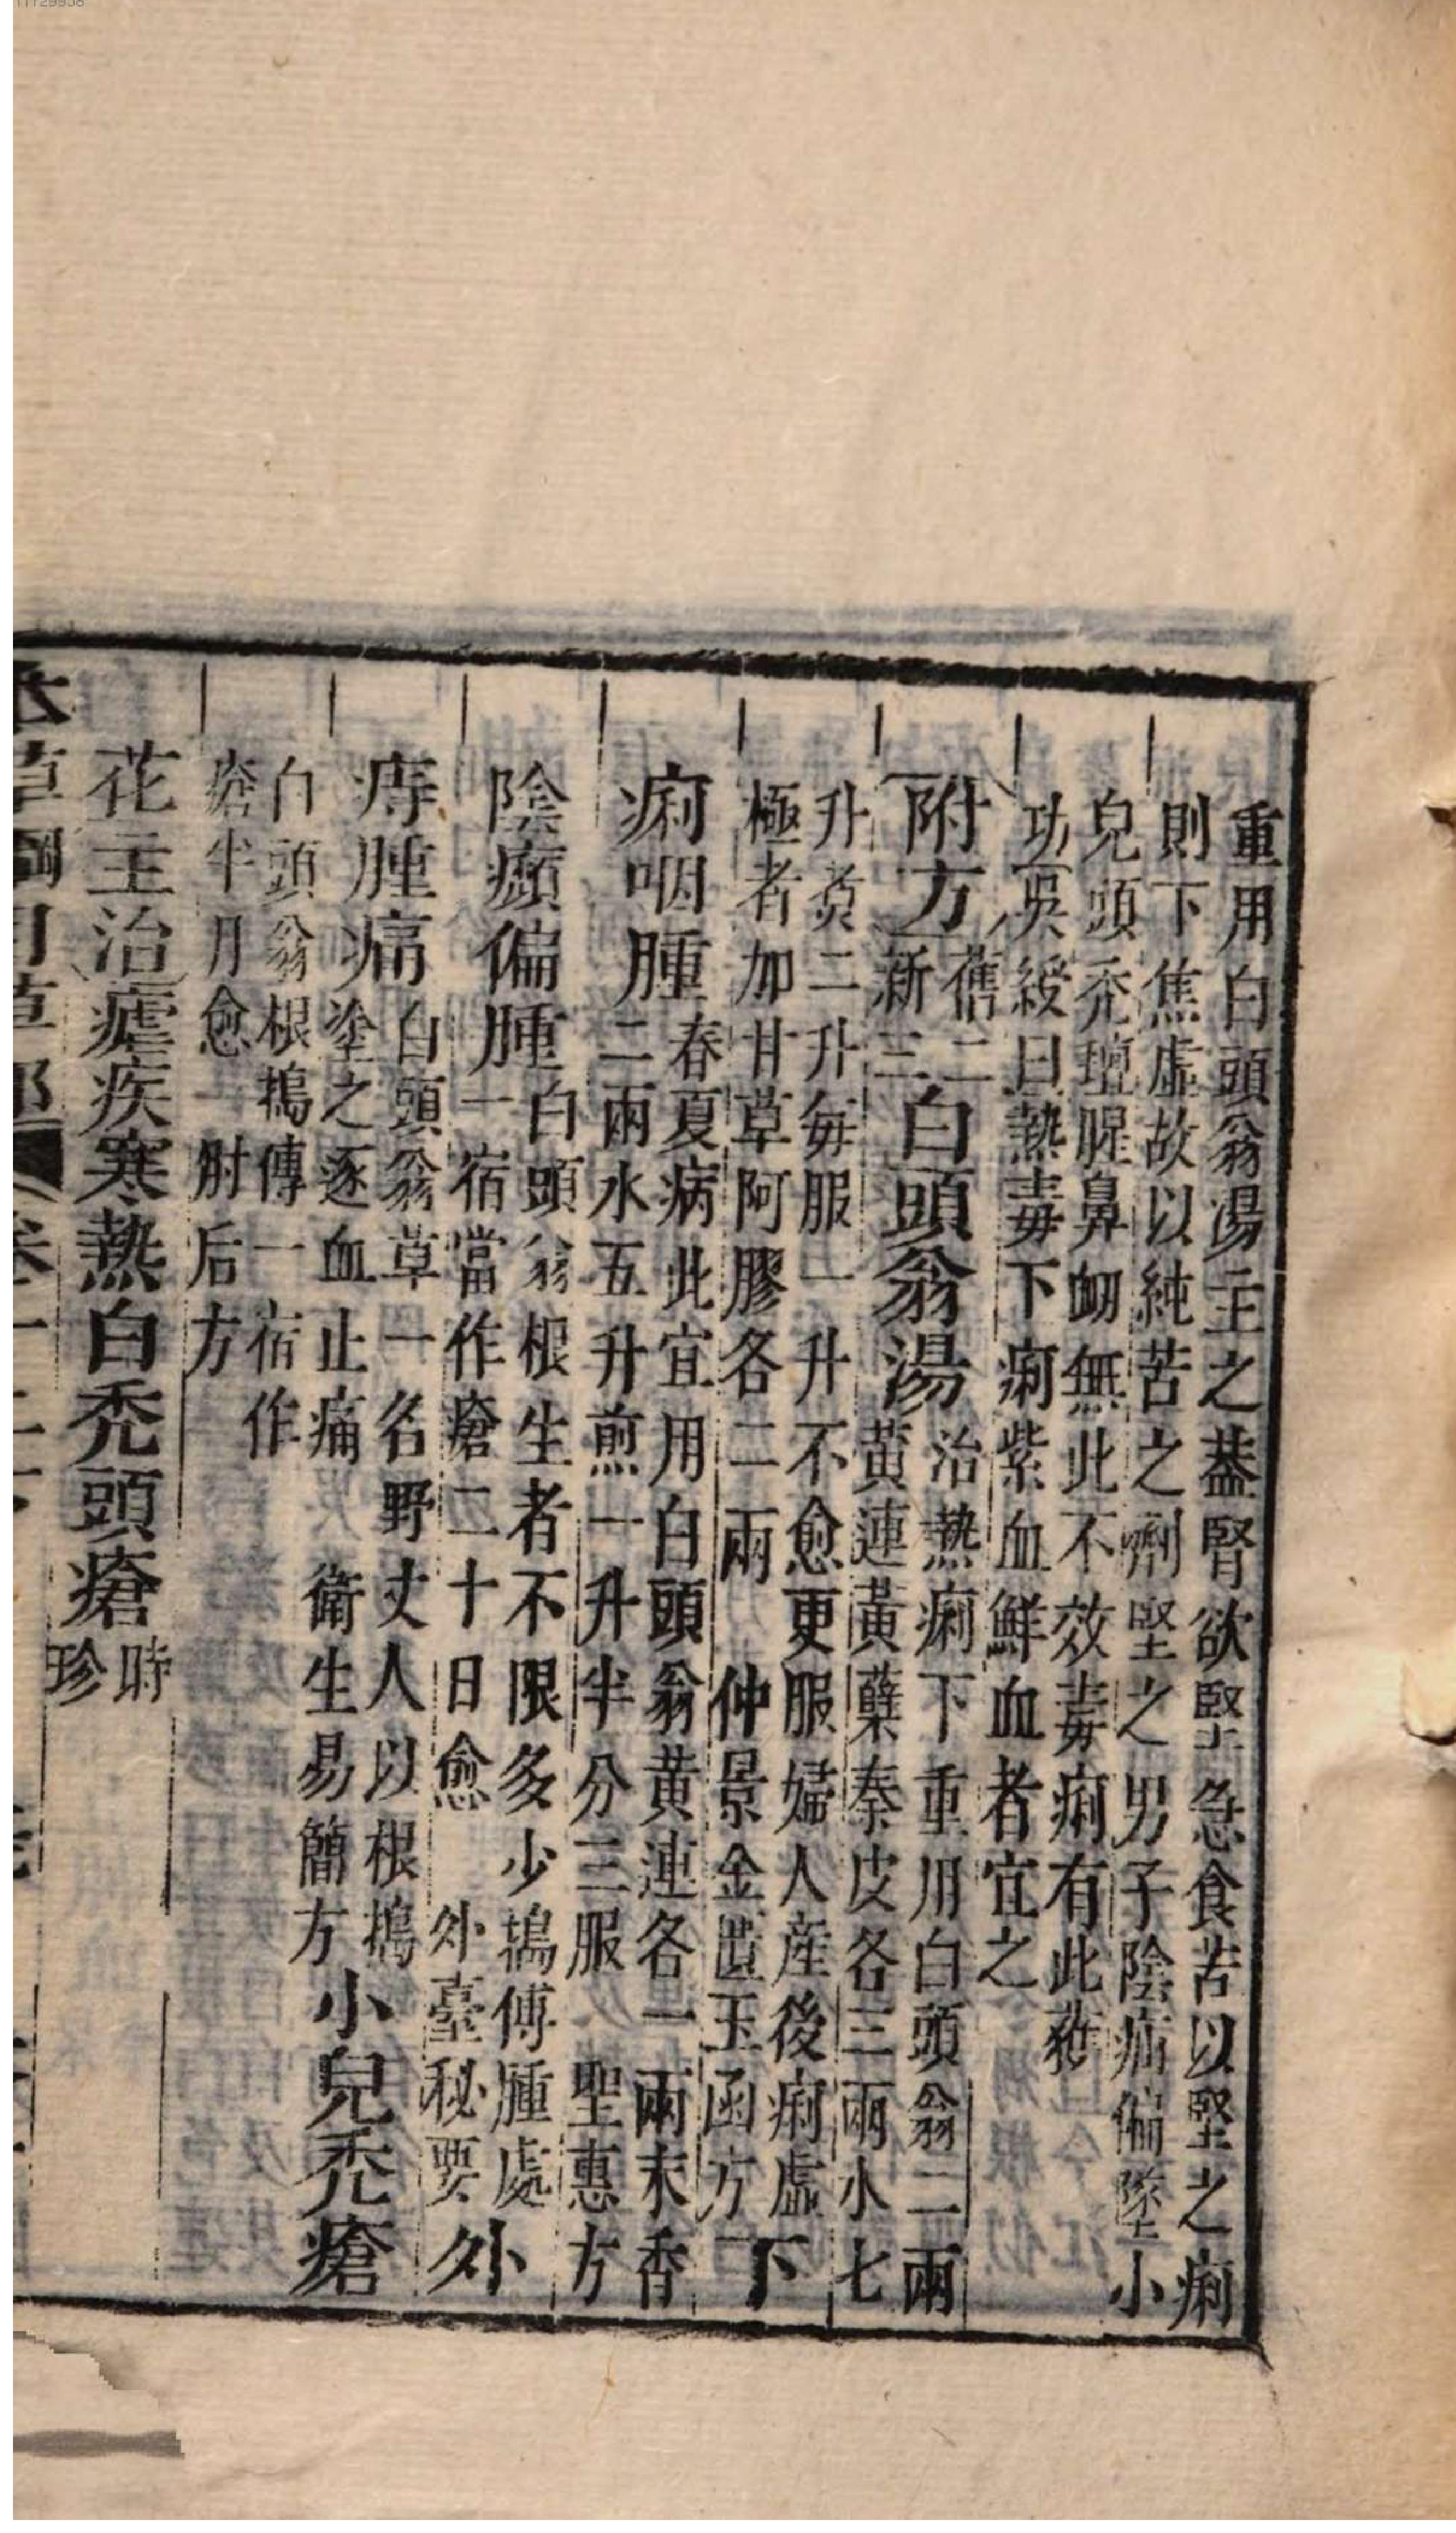 重用白頭翁湯主之葢腎欲堅急食苦以堅之痢
則下焦虛故以純苦之劑堅之男子陰疝偏墜小
兒頭禿羶腥鼻衂無此不效毒痢有此獲
功吳綬曰熱毒下痢紫血鮮血者宜之
附方舊二新三白頭翁湯治熱痢下重用白頭翁二兩
黃連黃蘗秦皮各三兩水七
升煑二升每服一升不愈更服婦人産後痢虛
極者加甘草阿膠各二兩 仲景金匱玉函方 下
痢咽腫春夏病此宜用白頭翁黃連各一兩末香
二兩水五升煎一升半分三服 聖惠方
陰㿗偏腫白頭翁根生者不限多少搗傅腫處
一宿當作瘡二十日愈 外臺秘要 外
痔腫痛白頭翁草一名野丈人以根搗
塗之逐血止痛 衛生易簡方 小兒禿瘡
白頭翁根搗傅一宿作
瘡半月愈 肘后方
花主治瘧疾寒熱白禿頭瘡時珍